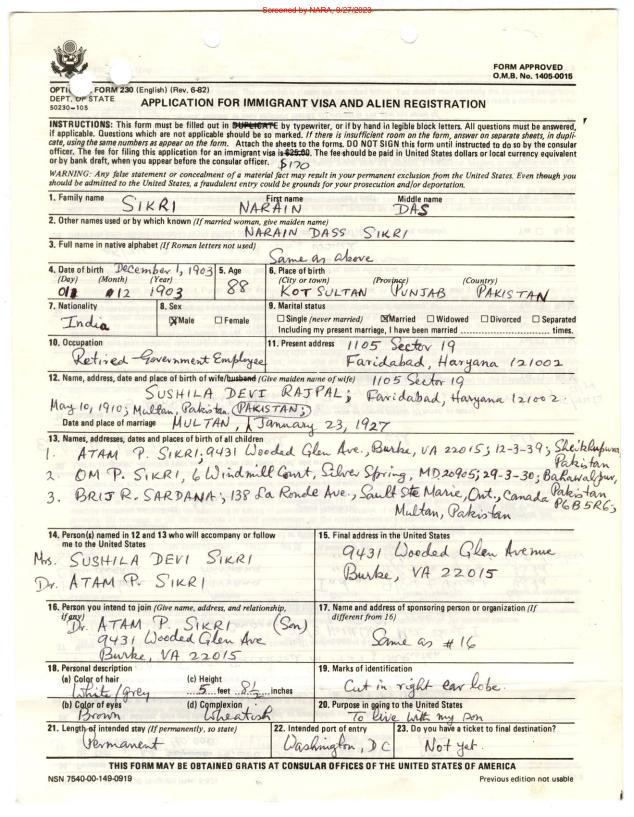 Screened by NARA, 9/27/2023
FORM APPROVED
O.M.B. No. 1405-0015
OPTI FORM 230 (English) (Rev. 6-82)
DEPT. OF STATE
50230-105
APPLICATION FOR IMMIGRANT VISA AND ALIEN REGISTRATION
INSTRUCTIONS: This form must be filled out in DUPLICATE by typewriter, or if by hand in legible block letters. All questions must be answered,
if applicable. Questions which are not applicable should be so marked. If there is insufficient room on the form, answer on separate sheets, in dupli-
cate, using the same numbers as appear on the form. Attach the sheets to the forms. DO NOT SIGN this form until instructed to do so by the consular
officer. The fee for filing this application for an immigrant visa is $25.00. The fee should be paid in United States dollars or local currency equivalent
or by bank draft, when you appear before the consular officer. $170
WARNING: Any false statement or concealment of a material fact may result in your permanent exclusion from the United States. Even though you
should be admitted to the United States, a fraudulent entry could be grounds for your prosecution and/or deportation.
1. Family name First name Middle name
SIKRI NARAIN DAS
2. Other names used or by which known (If married woman, give maiden name)
NARAIN DASS SIKRI
3. Full name in native alphabet (If Roman letters not used)
Same as above
4. Date of birth December 1, 1903 5. Age 6. Place of birth
(Day) (Month) (Year) 88 (City or town) (Province) (Country)
01 12 1903 KOT SULTAN PUNJAB PAKISTAN
7. Nationality 8. Sex 9. Marital status
India ☒ Male ☐ Female ☐ Single (never married) ☒ Married ☐ Widowed ☐ Divorced ☐ Separated
Including my present marriage, I have been married ........ times.
10. Occupation 11. Present address 1105 Sector 19
Retired Government Employee Faridabad, Haryana 121002
12. Name, address, date and place of birth of wife/husband (Give maiden name of wife) 1105 Sector 19
SUSHILA DEVI RAJPAL; Faridabad, Haryana 121002.
May 10, 1910; Multan, Pakistan (PAKISTAN;)
Date and place of marriage MULTAN, January 23, 1927
13. Names, addresses, dates and places of birth of all children
1. ATAM P. SIKRI; 9431 Wooded Glen Ave., Burke, VA 22015; 12-3-39; Sheikhupura, Pakistan
2. OM P. SIKRI, 6 Windmill Court, Silver Spring, MD 20905; 29-3-30; Bahawalpur, Pakistan
3. BRIJ R. SARDANA; 138 La Ronde Ave., Sault Ste Marie, Ont., Canada P6B5R6;
Multan, Pakistan
14. Person(s) named in 12 and 13 who will accompany or follow
me to the United States
Mrs. SUSHILA DEVI SIKRI
Dr. ATAM P. SIKRI
15. Final address in the United States
9431 Wooded Glen Avenue
Burke, VA 22015
16. Person you intend to join (Give name, address, and relationship,
if any)
Dr. ATAM P. SIKRI (Son)
9431 Wooded Glen Ave
Burke, VA 22015
17. Name and address of sponsoring person or organization (If
different from 16)
Same as #16
18. Personal description
(a) Color of hair (c) Height
White/grey 5 feet 8½ inches
(b) Color of eyes (d) Complexion
Brown Wheatish
19. Marks of identification
Cut in right ear lobe.
20. Purpose in going to the United States
To live with my son
21. Length of intended stay (If permanently, so state) 22. Intended port of entry 23. Do you have a ticket to final destination?
Permanent Washington, DC Not yet.
THIS FORM MAY BE OBTAINED GRATIS AT CONSULAR OFFICES OF THE UNITED STATES OF AMERICA
NSN 7540-00-149-0919 Previous edition not usable